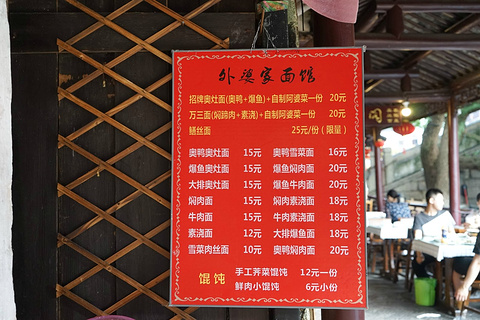 外婆家面馆
招牌奥灶面(奥鸭+爆鱼)+自制阿婆菜一份 20元
万三面(焖蹄肉+素浇)+自制阿婆菜一份 20元
鳝丝面 25元/份(限量)
奥鸭奥灶面 15元 奥鸭雪菜面 16元
爆鱼奥灶面 15元 爆鱼焖肉面 20元
大排奥灶面 15元 爆鱼牛肉面 20元
焖肉面 15元 焖肉素浇面 18元
牛肉面 15元 牛肉素浇面 18元
素浇面 12元 大排爆鱼面 18元
雪菜肉丝面 10元 奥鸭焖肉面 20元
馄饨 手工荠菜馄饨 12元一份
鲜肉小馄饨 6元小份